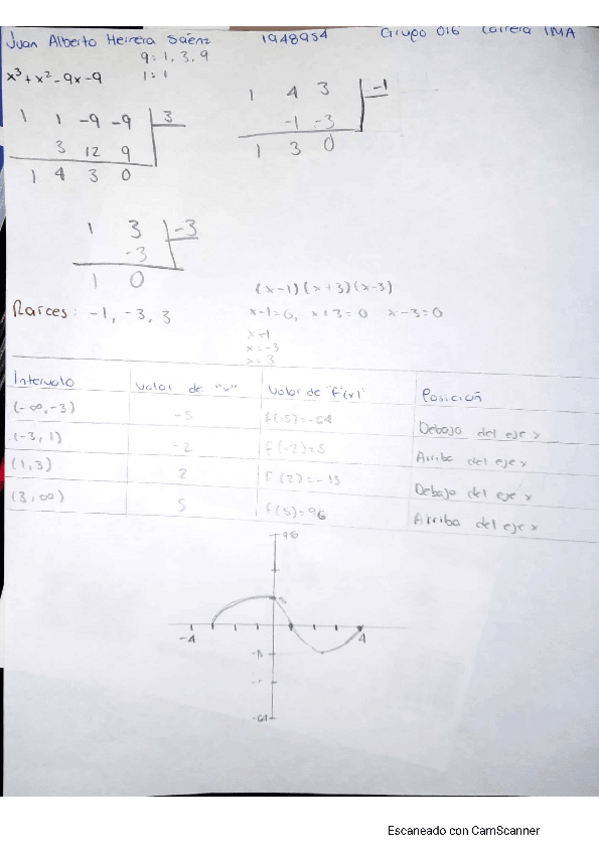 Juan Alberto Herrera Sáenz 1948954 Grupo 016 Carrera IMA
9: 1, 3, 9
x³+x²-9x-9 1: 1
1 1 -9 -9 |3
3 12 9
1 4 3 0
1 4 3 |-1
-1 -3
1 3 0
1 3 |-3
-3
1 0
(x-1)(x+3)(x-3)
Raíces: -1, -3, 3 x-1=0, x+3=0 x-3=0
x=1
x=-3
x=3
Intervalo Valor de "x" Valor de "f(x)" Posición
(-∞,-3) -5 f(-5)=-64 Debajo del eje x
(-3, 1) -2 f(-2)=5 Arriba del eje x
(1,3) 2 f(2)=-15 Debajo del eje x
(3,∞) 5 f(5)=96 Arriba del eje x
-4 4
-64
Escaneado con CamScanner